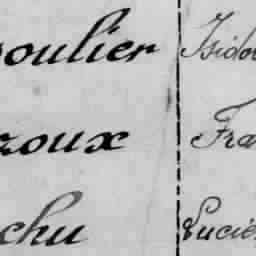 oulier Isido
roux Fra
chu Lucie